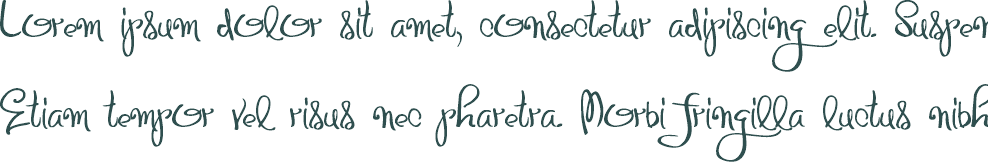 Lorem ipsum dolor sit amet, consectetur adipiscing elit. Suspen
Etiam tempor vel risus nec pharetra. Morbi fringilla luctus nibh